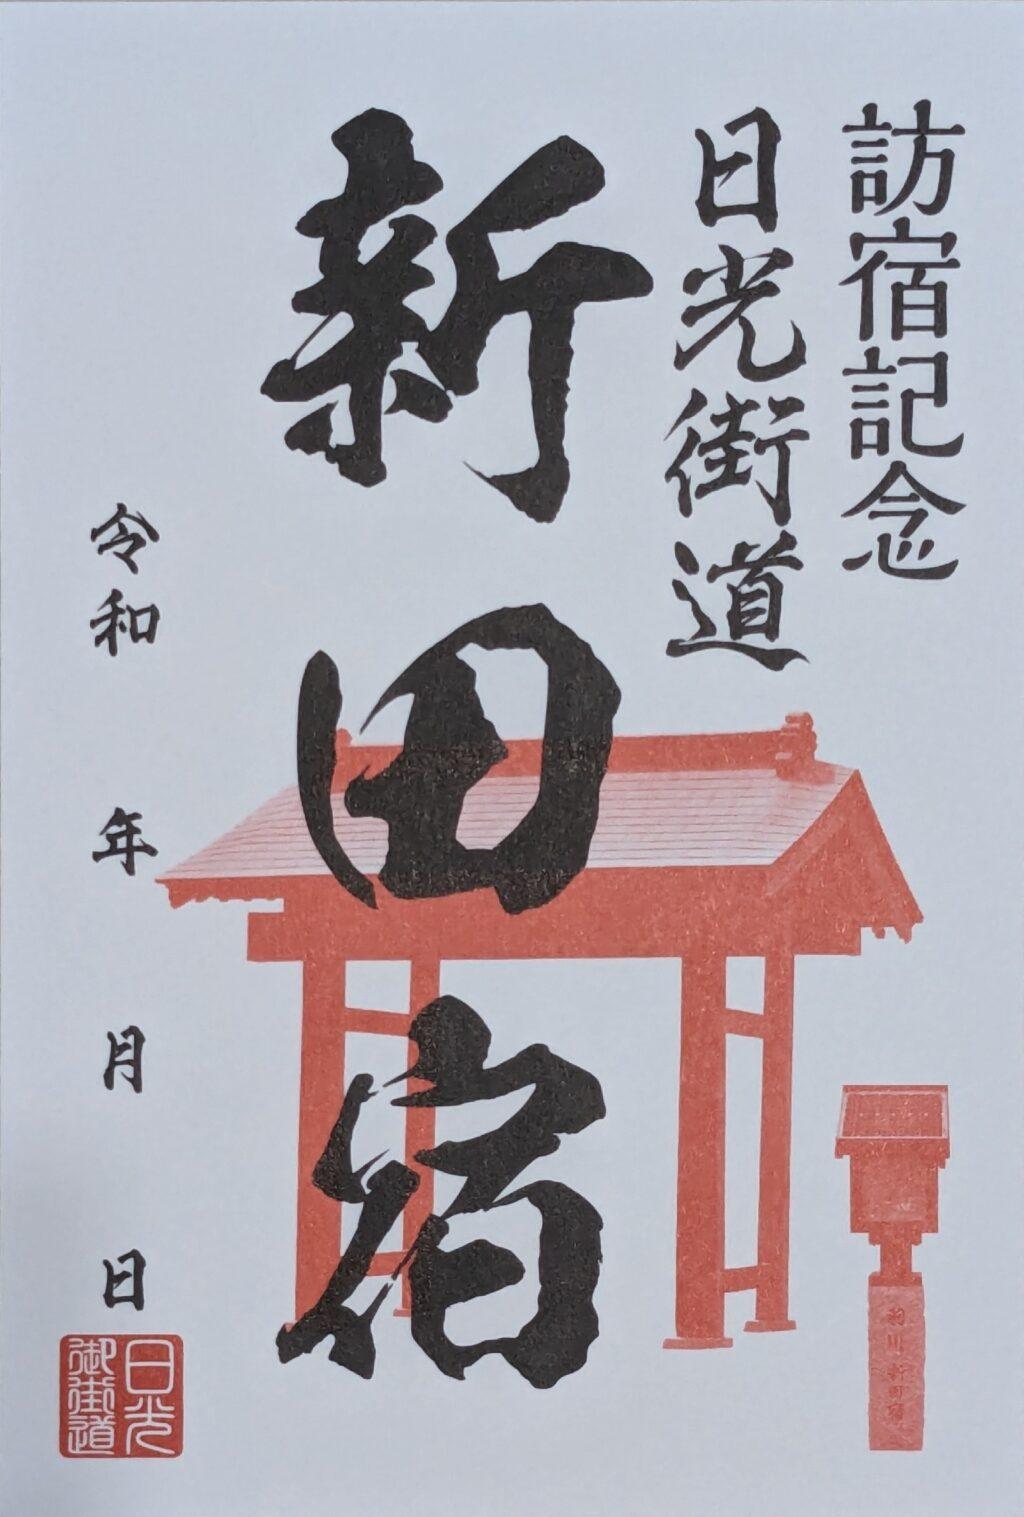 訪宿記念
日光街道
新田宿
令和 年 月 日
日光
御街道
羽川 新田宿